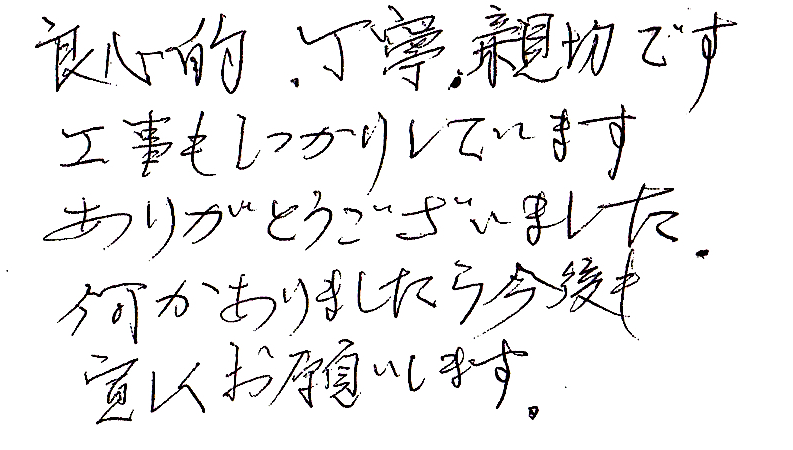 良心的.丁寧.親切です
工事もしっかりしています
ありがとうございました.
何かありましたら今後も
宜しくお願いします.